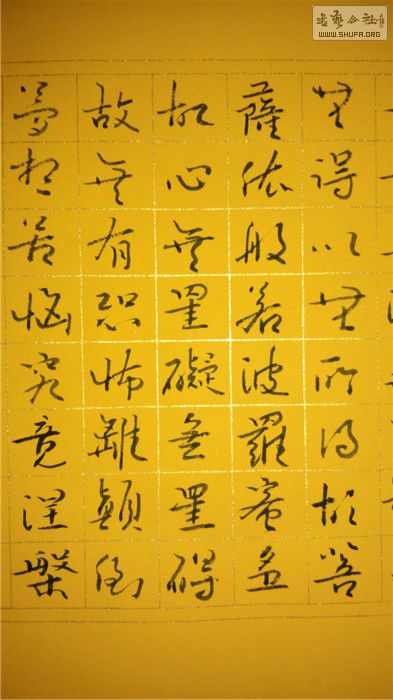 無得以無所得故菩
薩依般若波羅蜜多
故心無罣礙無罣碍
故無有恐怖離顛倒
夢想苦惱究竟涅槃
書藝公社
WWW.SHUFA.ORG